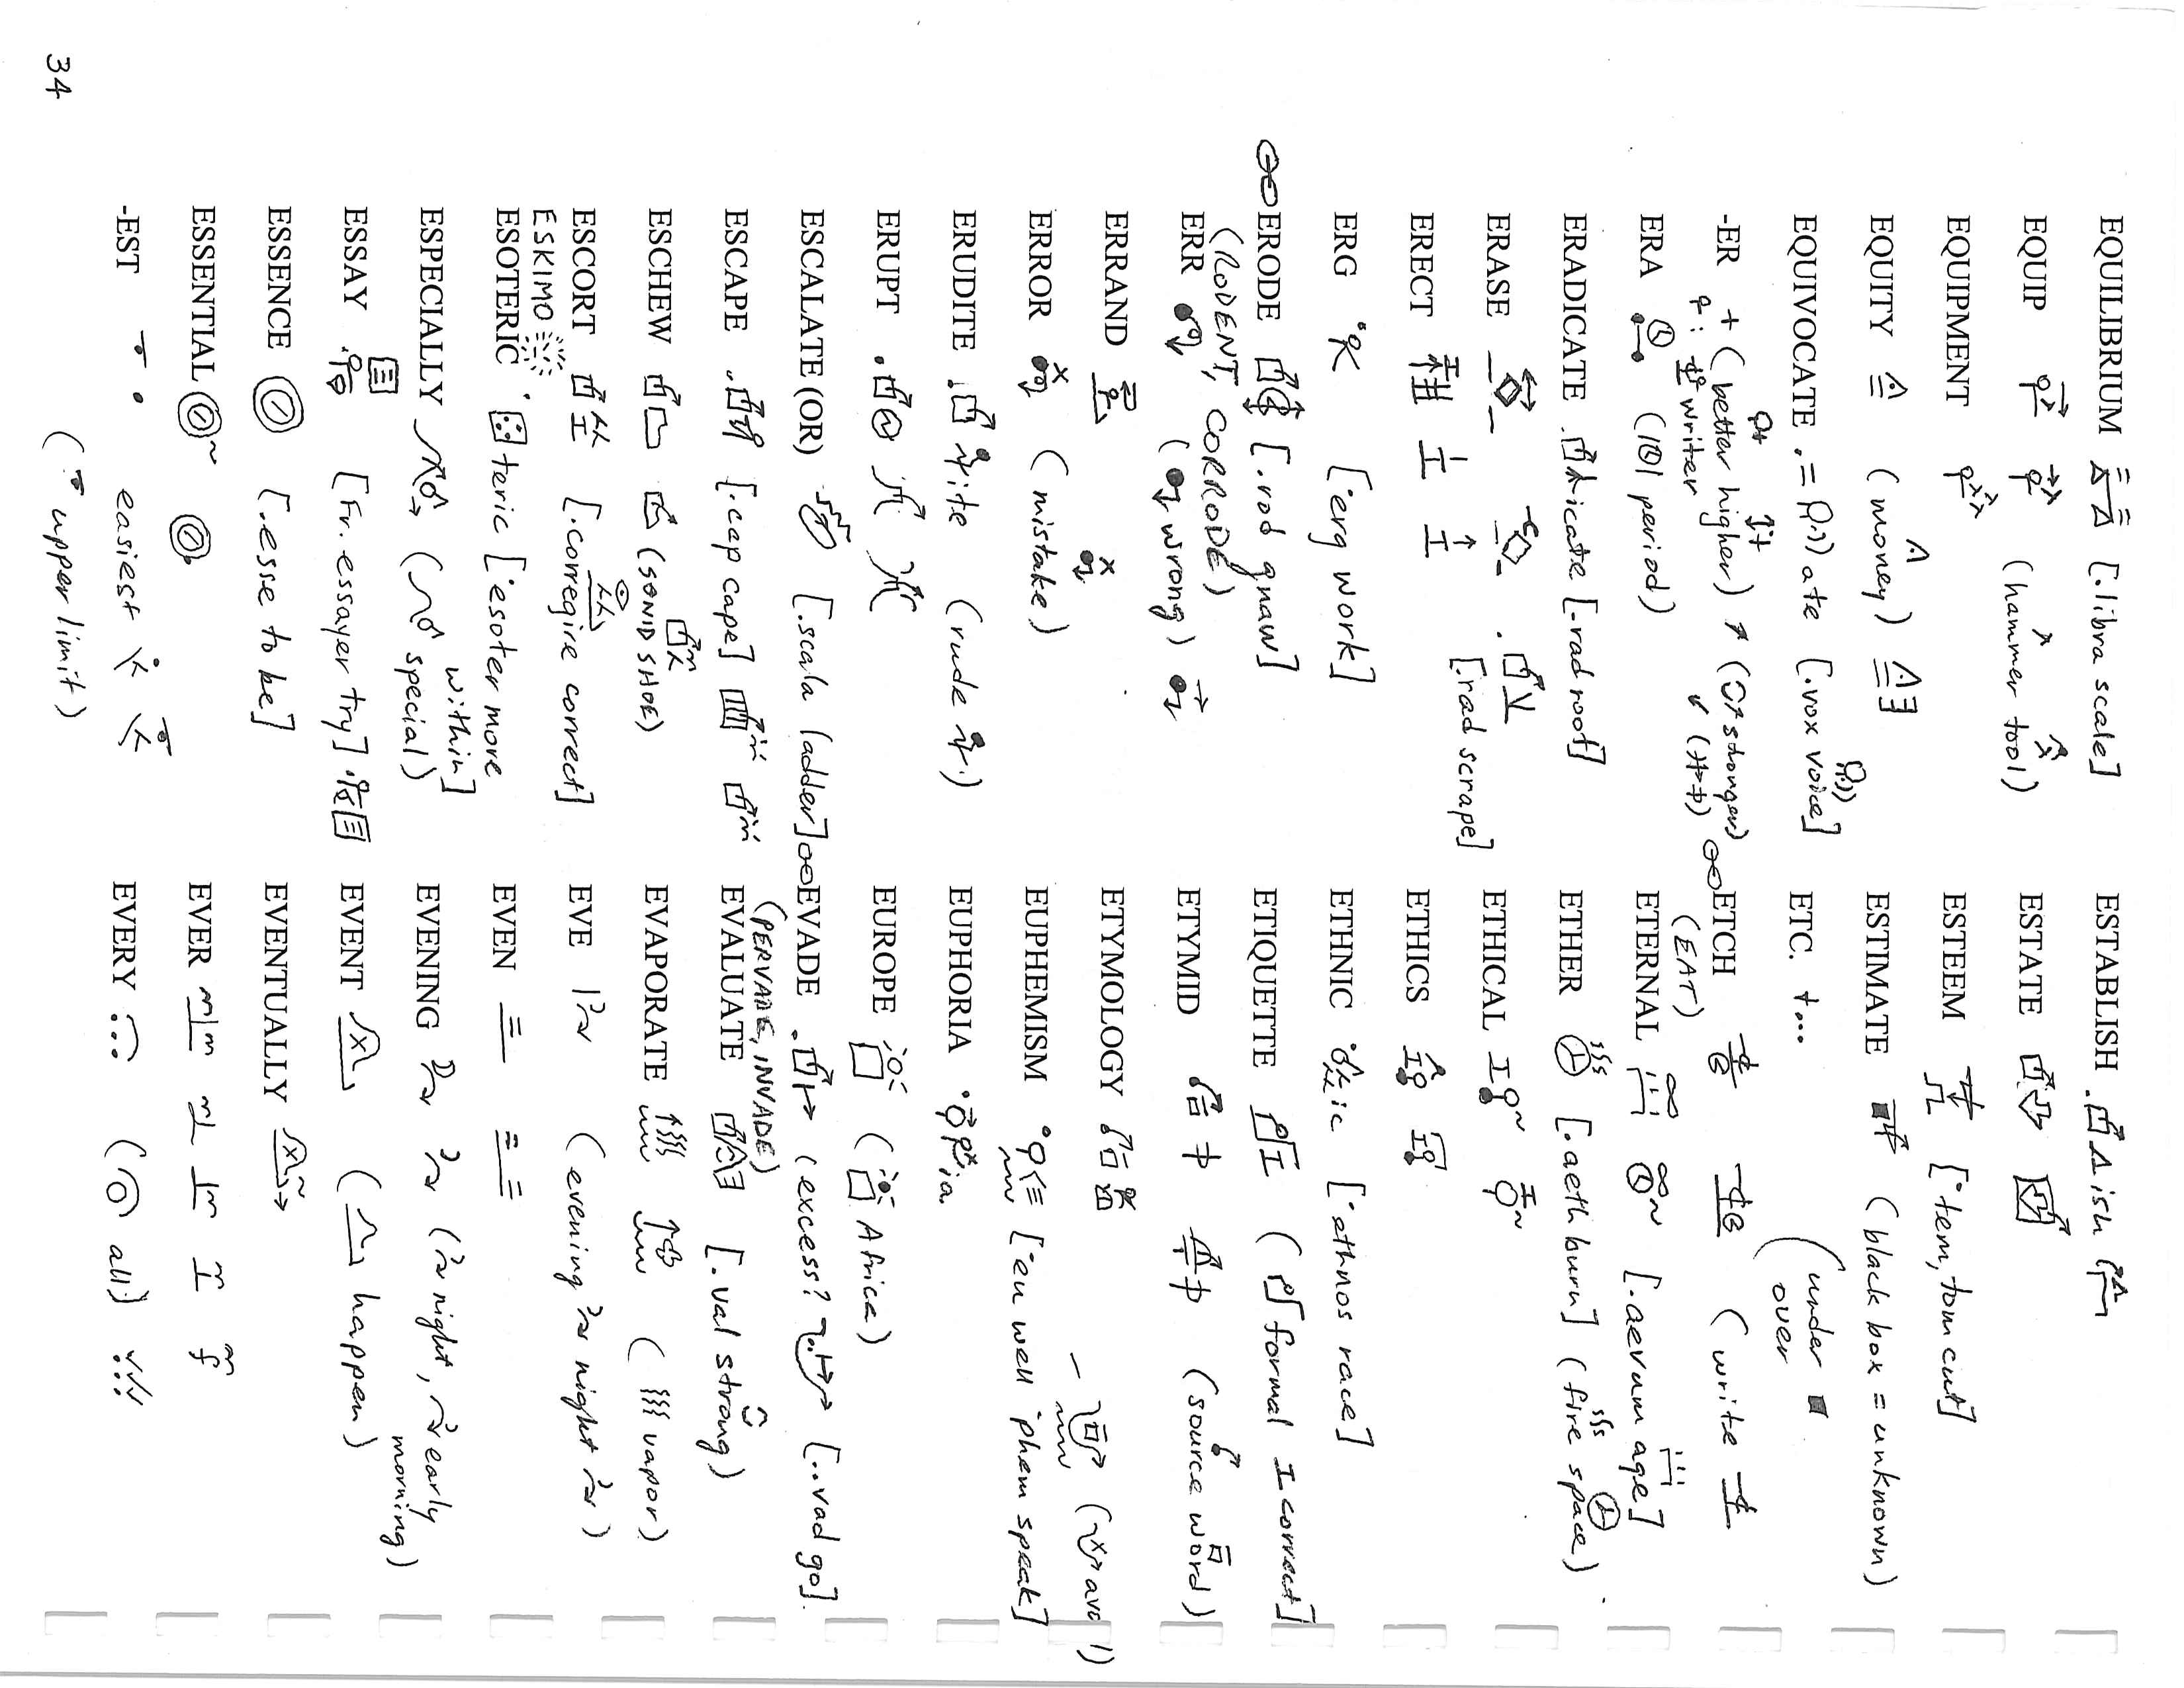 EQUILIBRIUM [.libra scale]
EQUIP (hammer tool)
EQUIPMENT
EQUITY (money)
EQUIVOCATE .= ate [.vox voice]
-ER + (better higher) (stronger)
: writer
ERA (101 period)
ERADICATE icate [.rad root]
ERASE [.rad scrape]
ERECT
ERG [·erg work]
ERODE [.rod gnaw]
(RODENT, CORRODE)
ERR (wrong)
ERRAND
ERROR (mistake)
ERUDITE ite (rude)
ERUPT
ESCALATE (OR) [.scala ladder]
ESCAPE [.cap cape]
ESCHEW (SOUND SHOE)
ESCORT [.corregire correct]
ESKIMO
ESOTERIC teric [·esoter more within]
ESPECIALLY (special)
ESSAY [Fr. essayer try]
ESSENCE [.esse to be]
ESSENTIAL
-EST easiest
(upper limit)
34
ESTABLISH ish
ESTATE
ESTEEM [·tem, tom cut]
ESTIMATE (black box = unknown)
ETC. +... (under over
ETCH (write
(EAT)
ETERNAL [.aevum age]
ETHER [.aeth burn] (fire space)
ETHICAL
ETHICS
ETHNIC ic [·ethnos race]
ETIQUETTE (formal I correct]
ETYMID (source word)
ETYMOLOGY
EUPHEMISM [·eu well ·phem speak]
EUPHORIA ia
EUROPE (Africa)
EVADE (excess? [..vad go].
(PERVADE, INVADE)
EVALUATE [.val strong)
EVAPORATE (vapor)
EVE (evening night)
EVEN
EVENING (night, early morning)
EVENT (happen)
EVENTUALLY
EVER
EVERY (all)